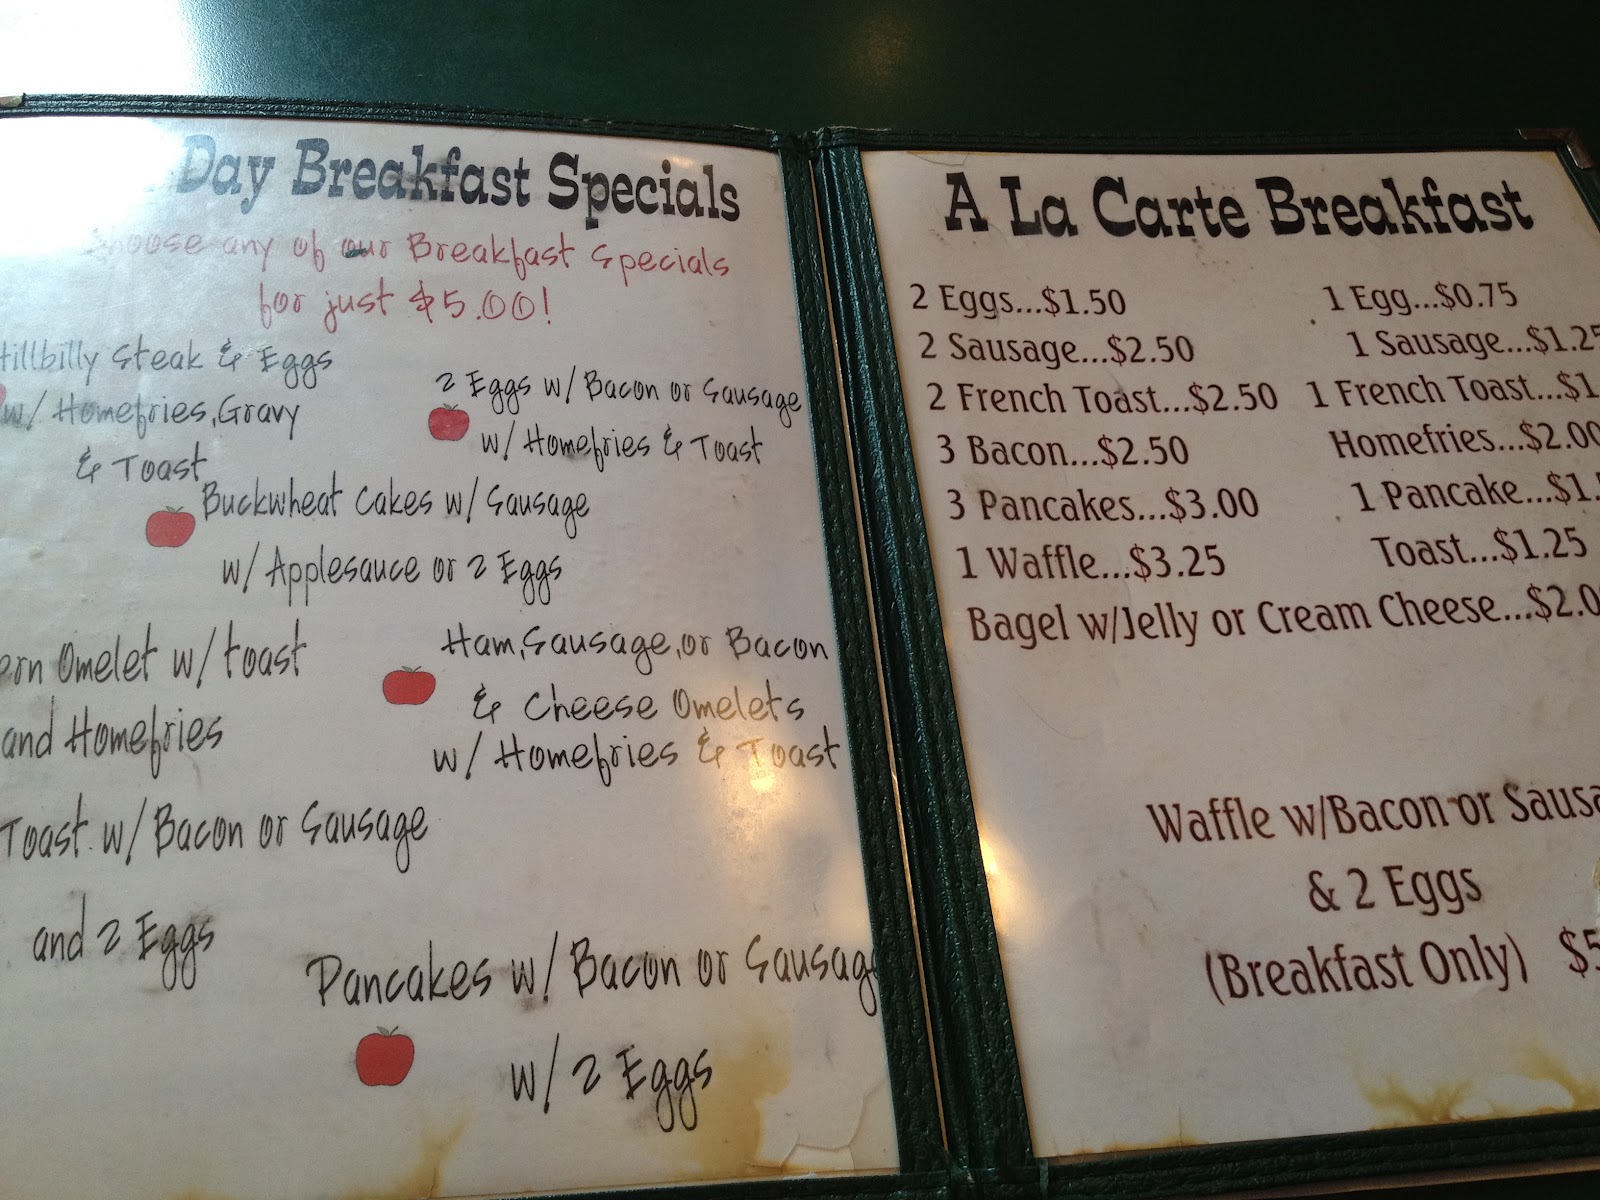 Day Breakfast Specials
Choose any of our Breakfast Specials
for just $5.00!
Hillbilly Steak & Eggs
w/ Homefries,Gravy
& Toast
2 Eggs w/ Bacon or Sausage
w/ Homefries & Toast
Buckwheat Cakes w/ Sausage
w/ Applesauce or 2 Eggs
Omelet w/ toast
and Homefries
Ham,Sausage,or Bacon
& Cheese Omelets
w/ Homefries & Toast
Toast w/ Bacon or Sausage
and 2 Eggs
Pancakes w/ Bacon or Sausag
w/ 2 Eggs
A La Carte Breakfast
2 Eggs...$1.50 1 Egg...$0.75
2 Sausage...$2.50 1 Sausage...$1.25
2 French Toast...$2.50 1 French Toast...$1.
3 Bacon...$2.50 Homefries...$2.00
3 Pancakes...$3.00 1 Pancake...$1.
1 Waffle...$3.25 Toast...$1.25
Bagel w/Jelly or Cream Cheese...$2.0
Waffle w/Bacon or Sausa
& 2 Eggs
(Breakfast Only) $5